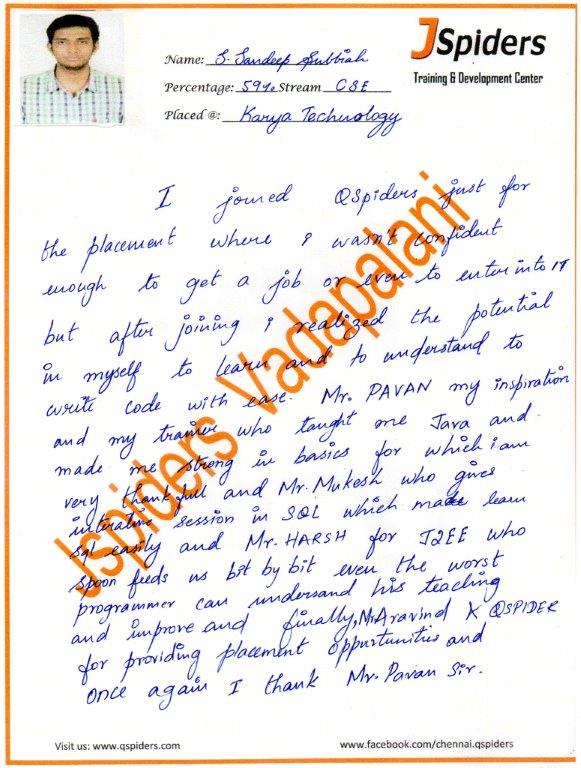 JSpiders
Training & Development Center
Name: S. Sandeep Subbiah
Percentage: 59% Stream CSE
Placed @: Karya Technology
I joined QSpiders just for
the placement where I wasn't confident
enough to get a job or even to enter into IT
but after joining i realized the potential
in myself to learn and to understand to
write code with ease. Mr. PAVAN my inspiration
and my trainer who taught me Java and
made me strong in basics for which i am
very thankfull and Mr. Mukesh who gives
session in SQL which made learn
Sql easily and Mr. HARSH for J2EE who
spoon feeds us bit by bit even the worst
programmer can undersand his teaching
and improve and finally, Mr Aravind X QSPIDER
for providing placement opportunities and
once again I thank Mr. Pavan Sir.
Jspiders Vadapalani
Visit us: www.qspiders.com
www.facebook.com/chennai.qspiders